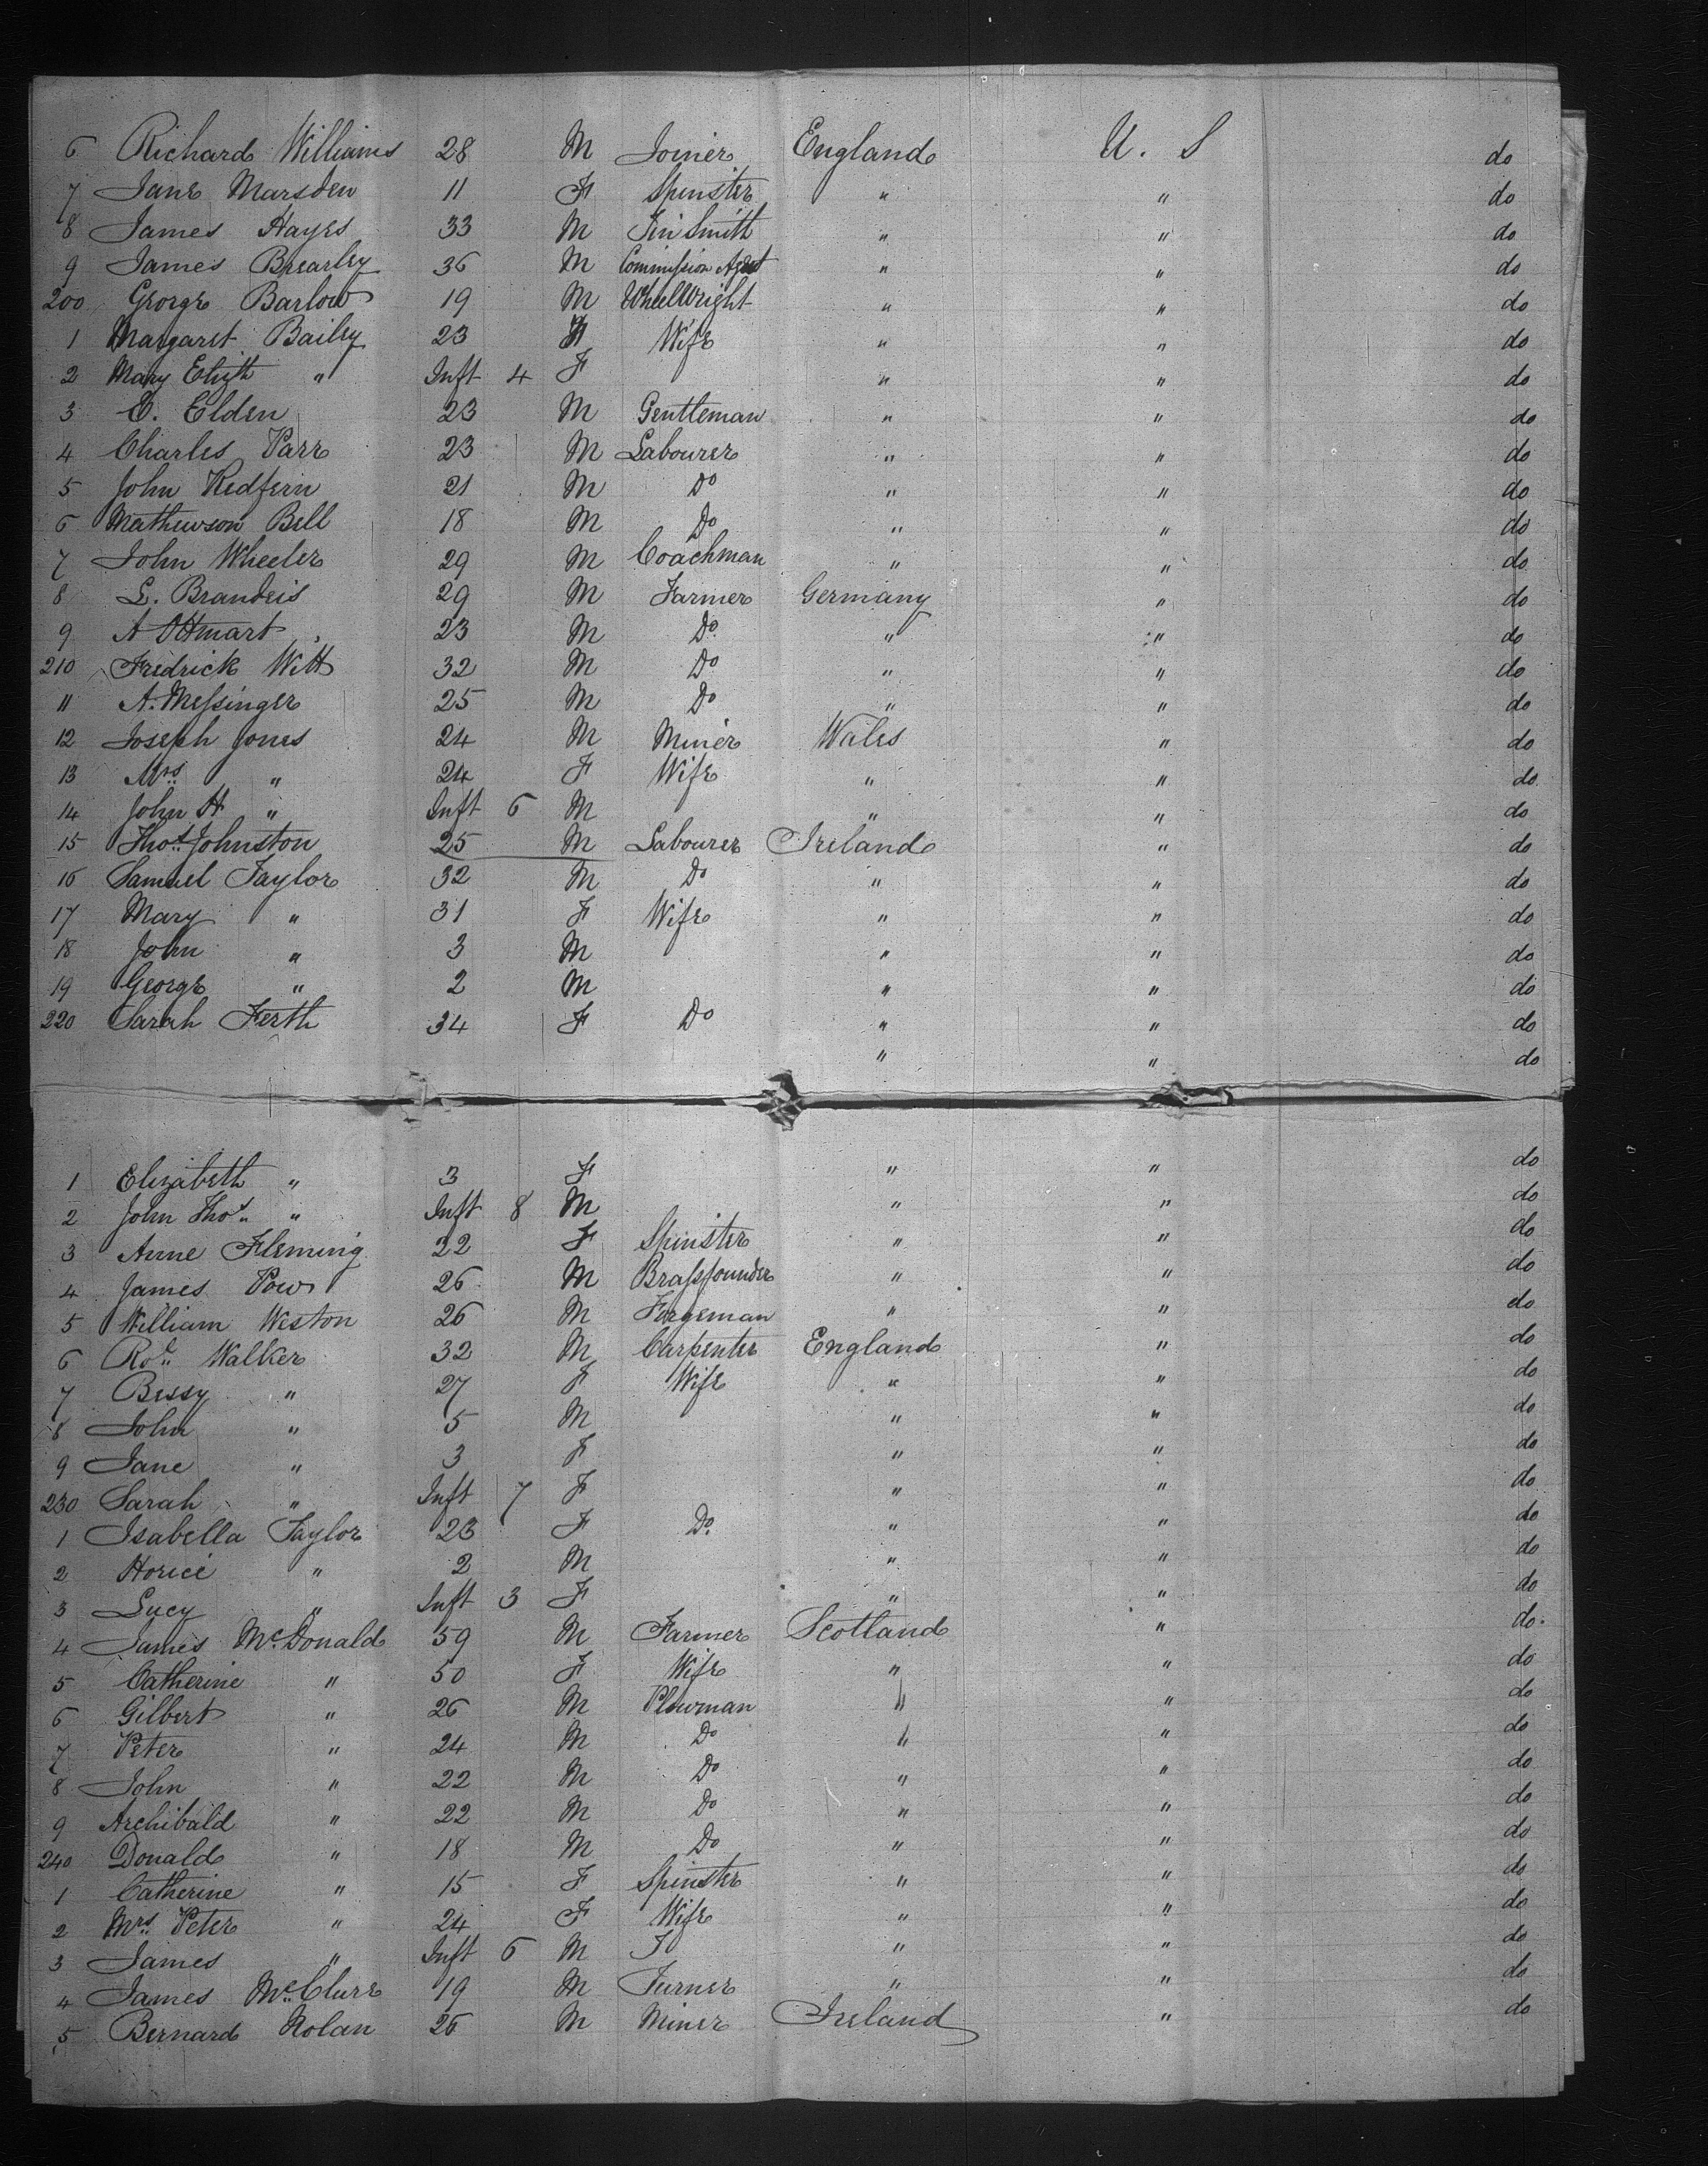 6 Richard Williams 28 M Joiner England U. S do
7 Jane Marsden 11 F Spinster " " do
8 James Hayes 33 M Tin Smith " " do
9 James Brearley 36 M Commission Agent " " do
200 George Barlow 19 M Wheelwright " " do
1 Margaret Bailey 23 F Wife " " do
2 Mary Elizth " Inft 4 F " " do
3 E. Elden 23 M Gentleman " " do
4 Charles Parr 23 M Labourer " " do
5 John Redfern 21 M Do " " do
6 Mathewson Bell 18 M Do " " do
7 John Wheeler 29 M Coachman " " do
8 L. Brandeis 29 M Farmer Germany " do
9 A Ottmart 23 M Do " " do
210 Fredrick Witt 32 M Do " " do
11 A. Messinger 25 M Do " " do
12 Joseph Jones 24 M Miner Wales " do
13 Mrs " 24 F Wife " " do
14 John H " Inft 6 M " " do
15 Thos. Johnston 25 M Labourer Ireland " do
16 Samuel Taylor 32 M Do " " do
17 Mary " 31 F Wife " " do
18 John " 3 M " " do
19 George " 2 M " " do
220 Sarah Ferth 34 F Do " " do
" " do
1 Elizabeth " 3 F " " do
2 John Thos. " Inft 8 M " " do
3 Anne Fleming 22 F Spinster " " do
4 James Pow 26 M Brassfounder " " do
5 William Weston 26 M Forgeman " " do
6 Rot. Walker 32 M Carpenter England " do
7 Bessy " 27 F Wife " " do
8 John " 5 M " " do
9 Jane " 3 F " " do
230 Sarah " Inft 7 F " " do
1 Isabella Taylor 23 F Do " " do
2 Horice " 2 M " " do
3 Lucy " Inft 3 F " " do
4 James McDonald 59 M Farmer Scotland " do
5 Catherine " 50 F Wife " " do
6 Gilbert " 26 M Plowman " " do
7 Peter " 24 M Do " " do
8 John " 22 M Do " " do
9 Archibald " 22 M Do " " do
240 Donald " 18 M Do " " do
1 Catherine " 15 F Spinster " " do
2 Mrs. Peter " 24 F Wife " " do
3 James " Inft 6 M " " do
4 James McClure 19 M Turner " " do
5 Bernard Nolan 26 M Miner Ireland " do